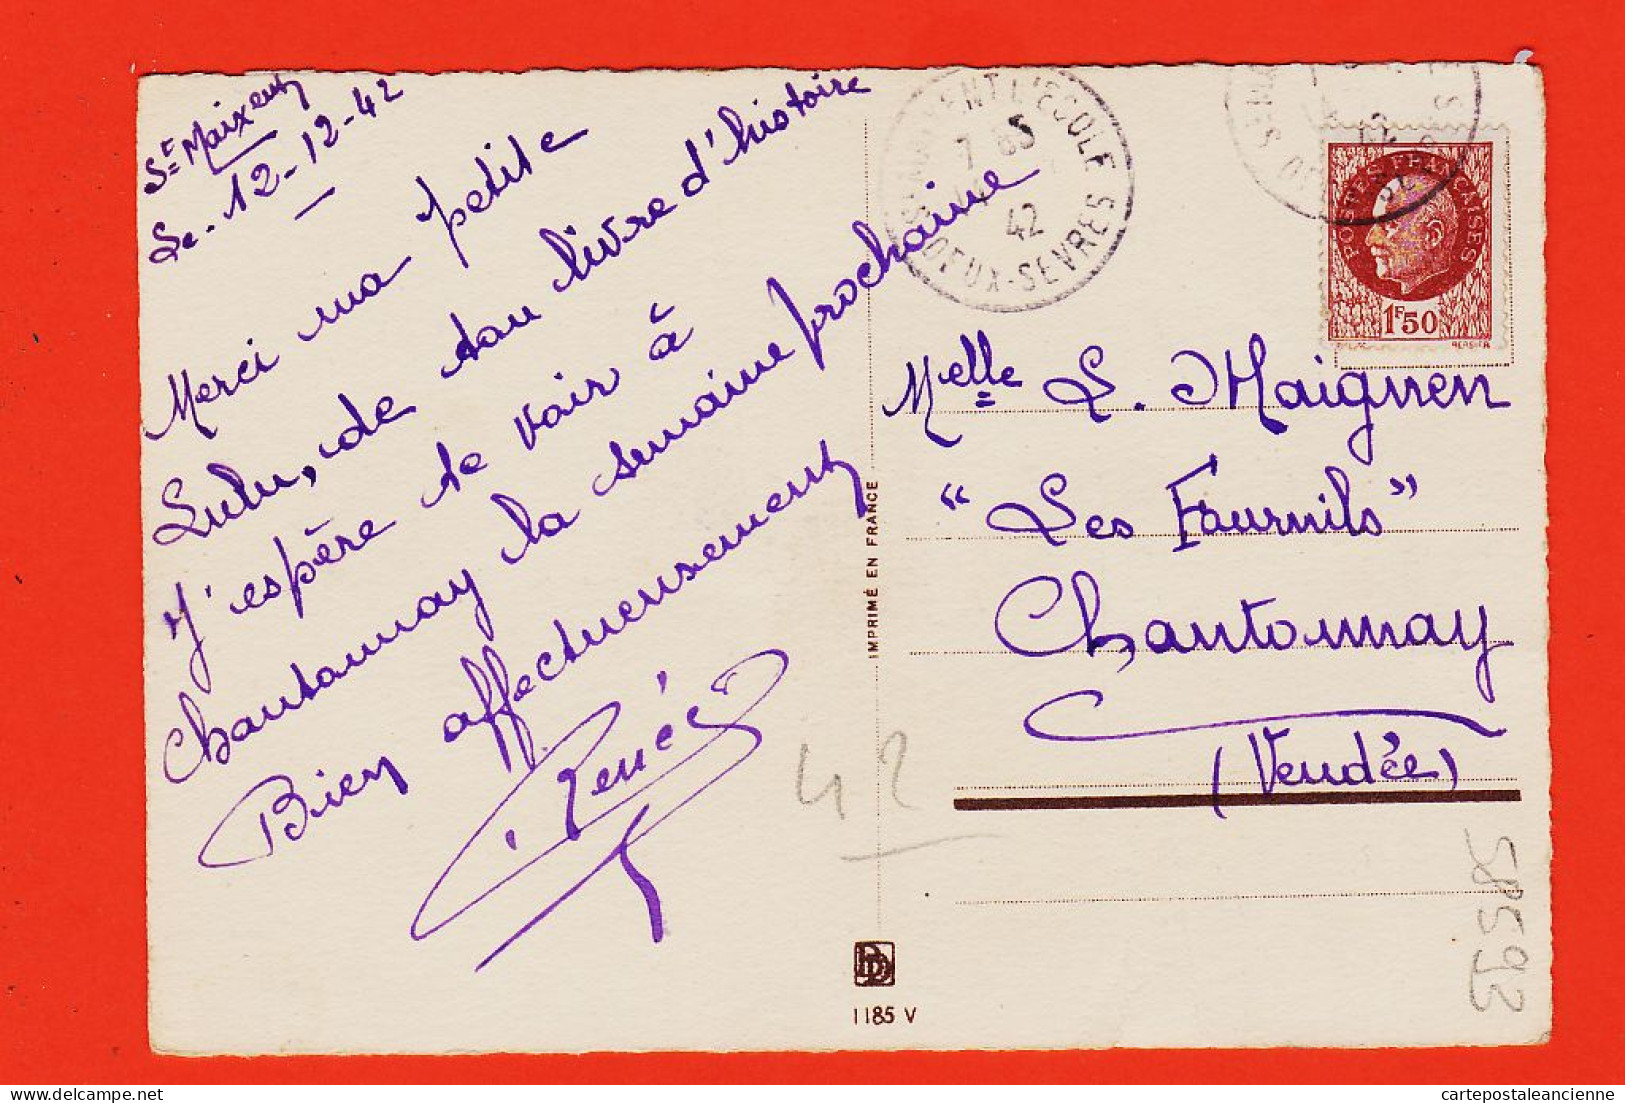 St Maixent
Le. 12-12-42
Merci ma petite
Lulu, de ton livre d'histoire
J'espère te voir à
Chantonnay la semaine prochaine
Bien affectueusement
Renée
IMPRIMÉ EN FRANCE
1185 V
42
L'ECOLE
7
42
DEUX-SEVRES
POSTES FRANÇAISES
1F50
Melle L. Maignen
"Les Fournils"
Chantonnay
(Vendée)
58593
cartepostaleancienne